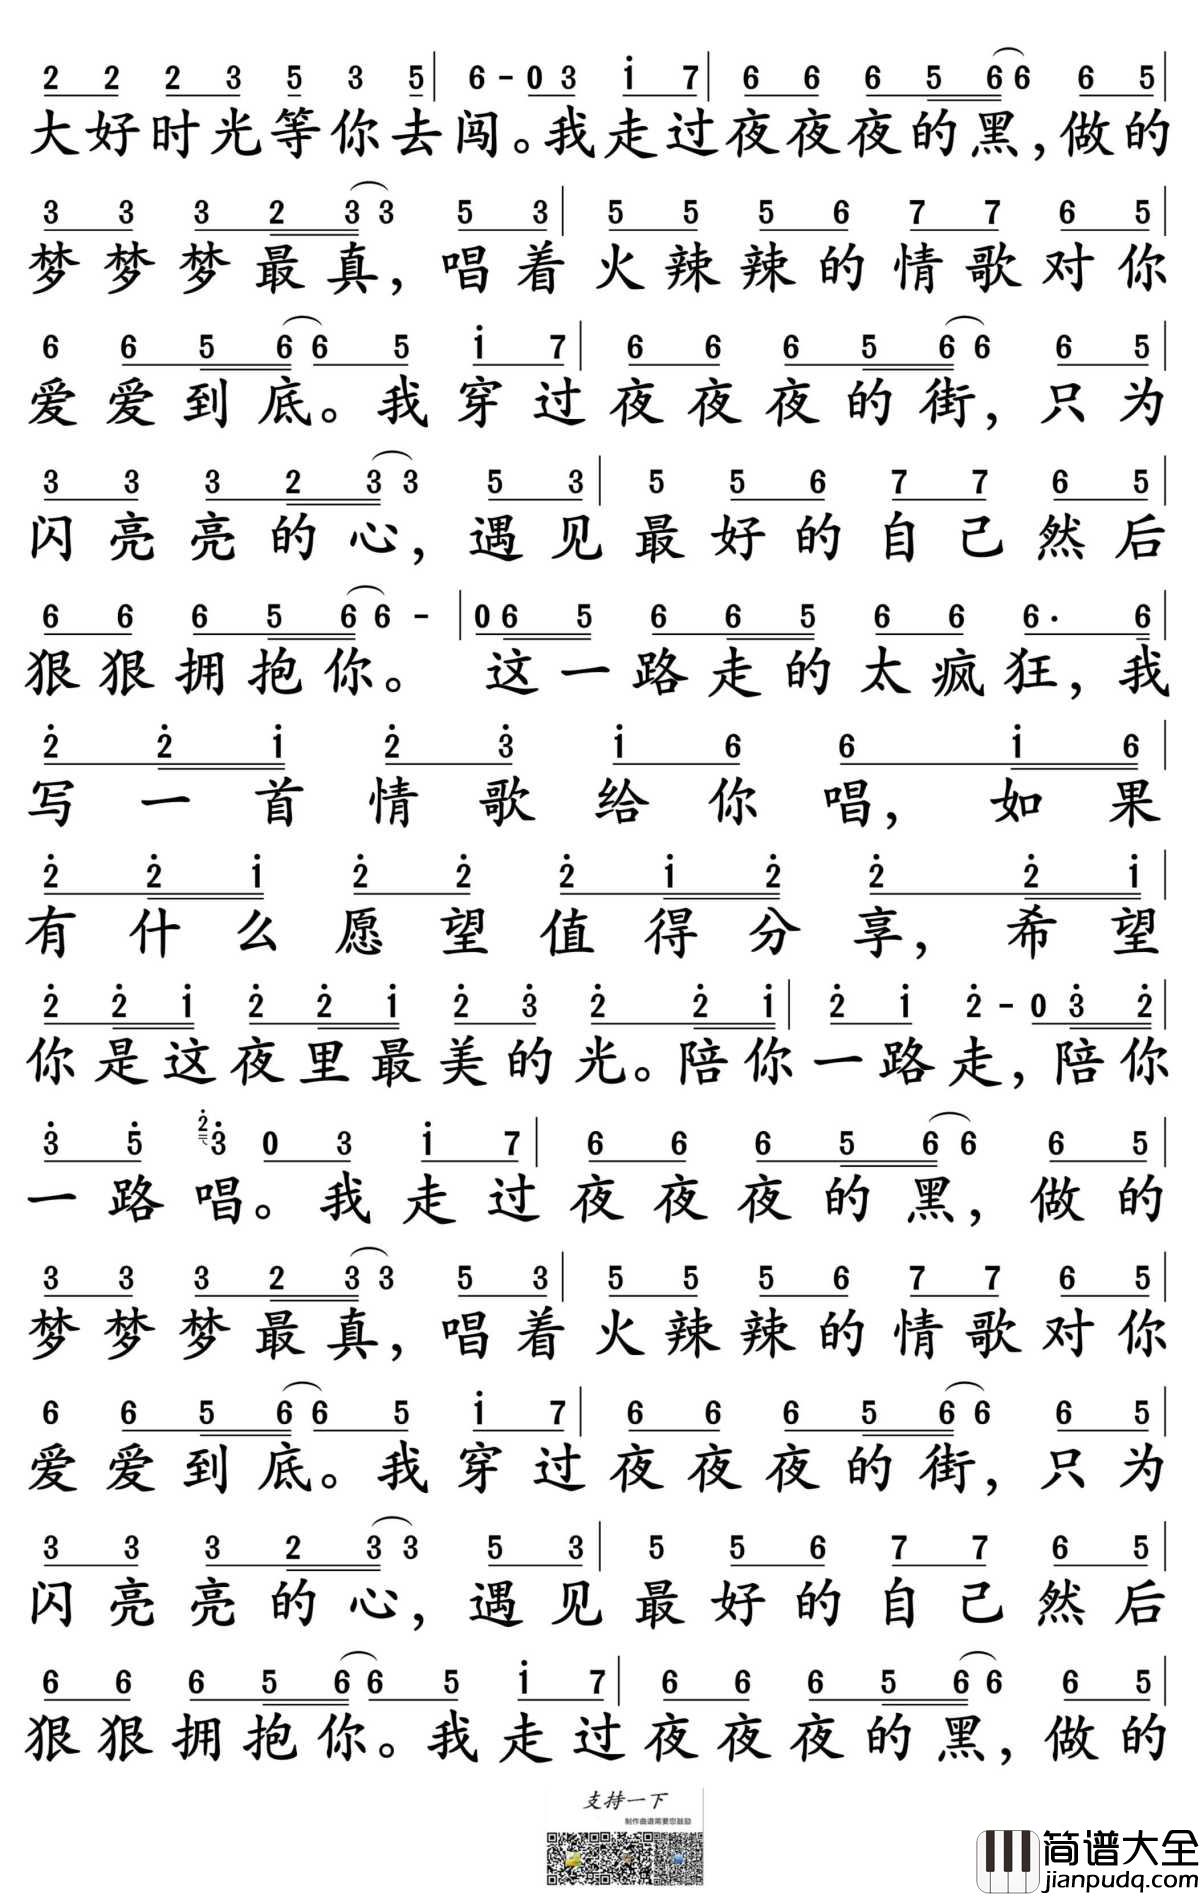 2 2 2 3 5 3 5 | 6 - 0 3 i 7 | 6 6 6 5 6 6 6 5 |
大好时光等你去闯。我走过夜夜夜的黑，做的
3 3 3 2 3 3 5 3 | 5 5 5 6 7 7 6 5 |
梦梦梦最真，唱着火辣辣的情歌对你
6 6 5 6 6 5 i 7 | 6 6 6 5 6 6 6 5 |
爱爱到底。我穿过夜夜夜的街，只为
3 3 3 2 3 3 5 3 | 5 5 6 7 7 6 5 |
闪亮亮的心，遇见最好的自己然后
6 6 6 5 6 6 - | 0 6 5 6 6 5 6 6 6· 6 |
狠狠拥抱你。这一路走的太疯狂，我
2̇ 2̇ i 2̇ 3̇ i 6 6 i 6 |
写一首情歌给你唱，如果
2̇ 2̇ i 2̇ 2̇ 2̇ i 2̇ 2̇ 2̇ i |
有什么愿望值得分享，希望
2̇ 2̇ i 2̇ 2̇ i 2̇ 3̇ 2̇ 2̇ i | 2̇ i 2̇ - 0 3̇ 2̇ |
你是这夜里最美的光。陪你一路走，陪你
3̇ 5̇ 2̇ 3̇ 0 3 i 7 | 6 6 6 5 6 6 6 5 |
一路唱。我走过夜夜夜的黑，做的
3 3 3 2 3 3 5 3 | 5 5 5 6 7 7 6 5 |
梦梦梦最真，唱着火辣辣的情歌对你
6 6 5 6 6 5 i 7 | 6 6 6 5 6 6 6 5 |
爱爱到底。我穿过夜夜夜的街，只为
3 3 3 2 3 3 5 3 | 5 5 6 7 7 6 5 |
闪亮亮的心，遇见最好的自己然后
6 6 6 5 6 6 5 i 7 | 6 6 6 5 6 6 6 5 |
狠狠拥抱你。我走过夜夜夜的黑，做的
支持一下
制作曲谱需要您鼓励
简谱大全
jianpudq.com